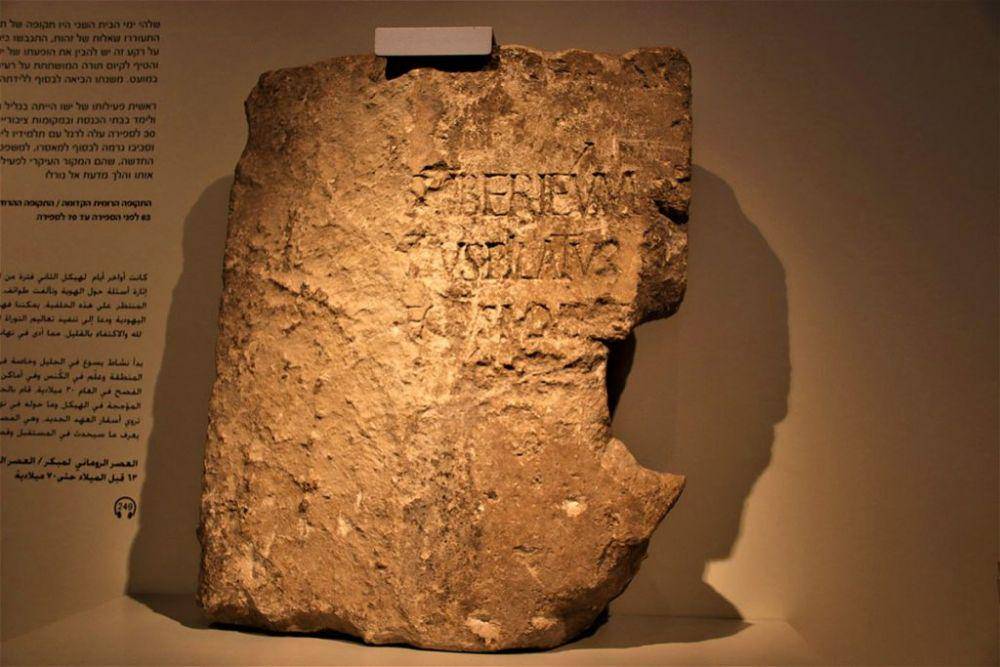 שלהי ימי הבית השני היו תקופה של
התעוררו שאלות של זהות, התגבשו
על רקע זה יש להבין את הופעתו של
והטיף לקיום תורה המושתתת על
במועט. משנתו הביאה לבסוף ללידתה
ראשית פעילותו של ישו הייתה בגליל
ולימד בבתי הכנסת ובמקומות
30 לספירה עלה לרגל עם תלמידיו
וסביבו גרמה לבסוף למאסרו,
החדשה, שהם המקור העיקרי
אותו והלך מדעת אל גורלו
התקופה הרומית הקדומה / התקופה
63 לפני הספירה עד 70 לספירה
كانت أواخر أيام الهيكل الثاني فترة من
إثارة أسئلة حول الهوية وتألفت طوائف.
المنتظر على هذه الخلفية. يمكننا
اليهودية ودعا إلى تنفيذ تعاليم التوراة
لله والاكتفاء بالقليل. مما أدى في
بدأ نشاط يسوع في الجليل وخاصة
المنطقة وعلّم في الكُنس وفي أماكن
الفصح في العام ٣٠ ميلادية. قام
المؤججة في الهيكل وما حوله في
تروي أسفار العهد الجديد، وهي
يعرف ما سيحدث في المستقبل
العصر الروماني المبكر / العصر
٦٣ قبل الميلاد حتى ٧٠ ميلادية
249
TIBERIEVM
TIVSPILATVS